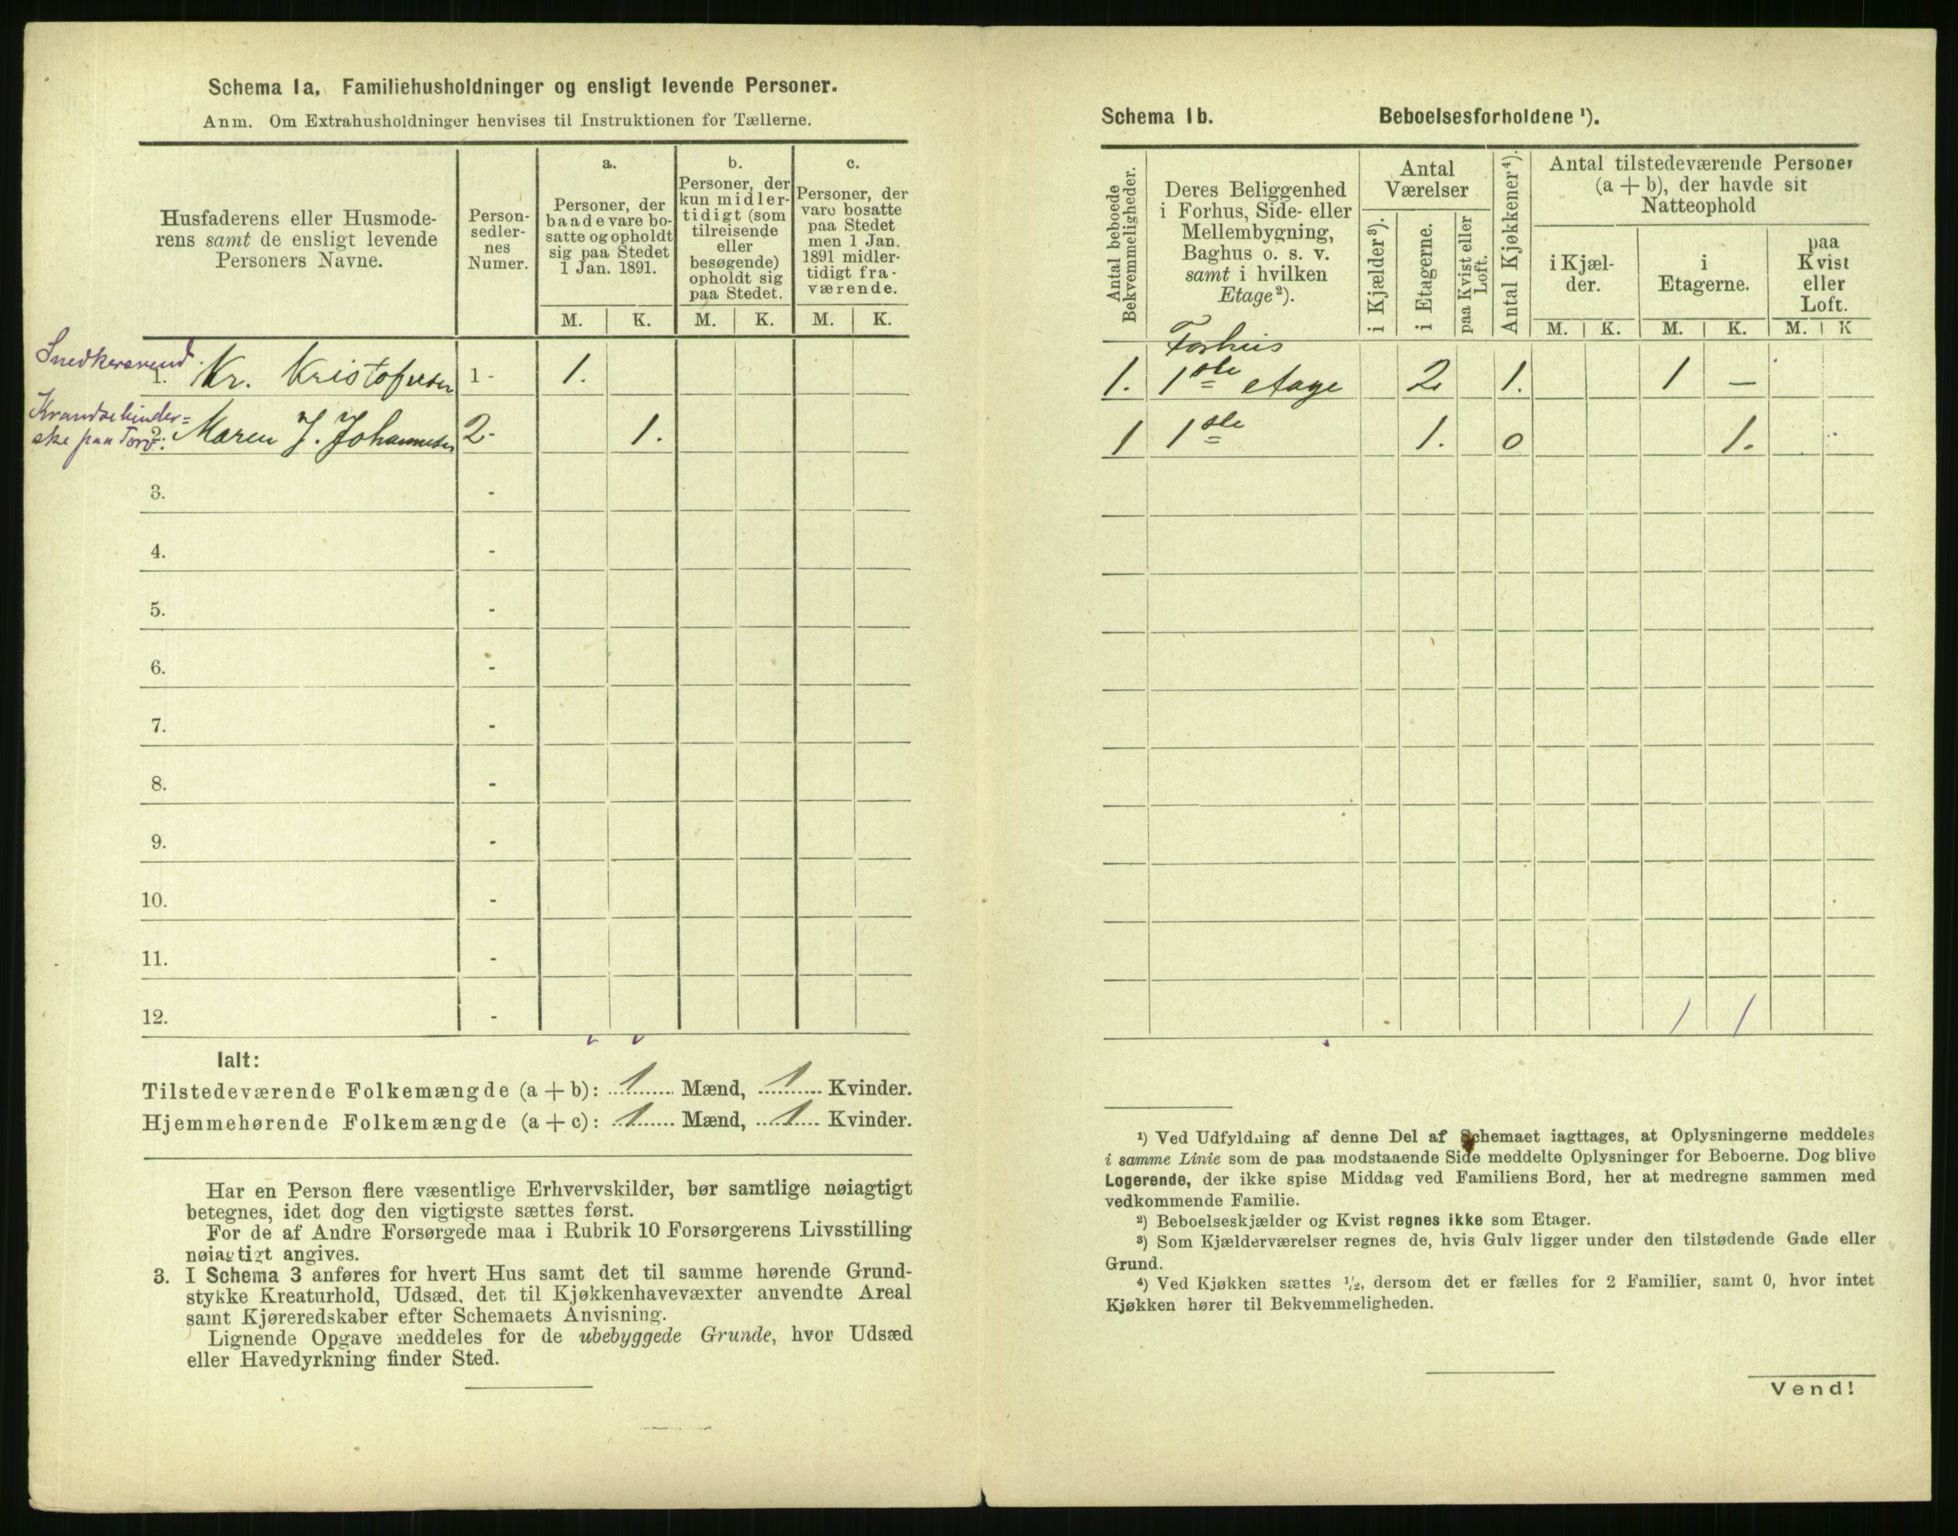 Schema 1a. Familiehusholdninger og ensligt levende Personer.
Anm. Om Extrahusholdninger henvises til Instruktionen for Tællerne.
Husfaderens eller Husmode-
rens samt de ensligt levende
Personers Navne.
Person-
sedler-
nes
Numer.
a.
Personer, der
baade vare bo-
satte og opholdt
sig paa Stedet
1 Jan. 1891.
b.
Personer, der
kun midler-
tidigt (som
tilreisende
eller
besøgende)
opholdt sig
paa Stedet.
c.
Personer, der
vare bosatte
paa Stedet
men 1 Jan.
1891 midler-
tidigt fra-
værende.
M. K. M. K. M. K.
Snedkersvend
1. Kr. Kristofersen 1- 1.
Krandsebinder=
ske paa Torv.
2. Maren J. Johannesen 2- 1.
3. -
4. -
5. -
6. -
7. -
8. -
9. -
10. -
11. -
12. -
Ialt:
Tilstedeværende Folkemængde (a + b): 1 Mænd, 1 Kvinder.
Hjemmehørende Folkemængde (a + c): 1 Mænd, 1 Kvinder.
Har en Person flere væsentlige Erhvervskilder, bør samtlige nøiagtigt
betegnes, idet dog den vigtigste sættes først.
For de af Andre Forsørgede maa i Rubrik 10 Forsørgerens Livsstilling
nøiagtigt angives.
3. I Schema 3 anføres for hvert Hus samt det til samme hørende Grund-
stykke Kreaturhold, Udsæd, det til Kjøkkenhavevæxter anvendte Areal
samt Kjøreredskaber efter Schemaets Anvisning.
Lignende Opgave meddeles for de ubebyggede Grunde, hvor Udsæd
eller Havedyrkning finder Sted.
Schema 1b. Beboelsesforholdene ¹).
Antal beboede
Bekvemmeligheder.
Deres Beliggenhed
i Forhus, Side- eller
Mellembygning,
Baghus o. s. v.
samt i hvilken
Etage²).
Antal
Værelser
i Kjælder³).
i Etagerne.
paa Kvist eller
Loft.
Antal Kjøkkener⁴).
Antal tilstedeværende Personer
(a + b), der havde sit
Natteophold
i Kjæl-
der.
i
Etagerne.
paa
Kvist
eller
Loft.
M. K. M. K. M. K
Forhus
1. 1ste etage 2. 1. 1 –
1 1ste 1. 0 1.
1 1
¹) Ved Udfyldning af denne Del af Schemaet iagttages, at Oplysningerne meddeles
i samme Linie som de paa modstaaende Side meddelte Oplysninger for Beboerne. Dog blive
Logerende, der ikke spise Middag ved Familiens Bord, her at medregne sammen med
vedkommende Familie.
²) Beboelseskjælder og Kvist regnes ikke som Etager.
³) Som Kjælderværelser regnes de, hvis Gulv ligger under den tilstødende Gade eller
Grund.
⁴) Ved Kjøkken sættes ½, dersom det er fælles for 2 Familier, samt 0, hvor intet
Kjøkken hører til Bekvemmeligheden.
Vend!